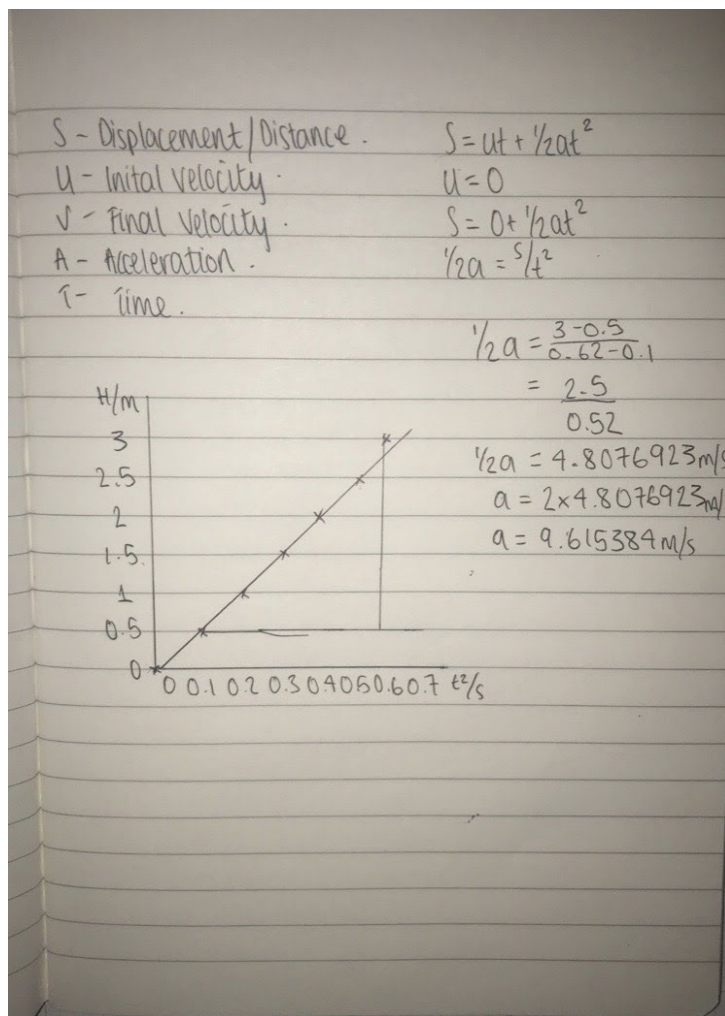 S - Displacement/Distance.
U - Inital Velocity.
V - Final Velocity.
A - Acceleration.
T - Time.
S = ut + 1/2at²
U = 0
S = 0 + 1/2at²
1/2a = s/t²
1/2a = 3-0.5
0.62-0.1
= 2.5
0.52
1/2a = 4.8076923m/s
a = 2x4.8076923m/
a = 9.615384m/s
H/m
3
2.5
2
1.5.
1
0.5
0
0 0.1 0.2 0.3 0.4 05 0.6 0.7 t²/s